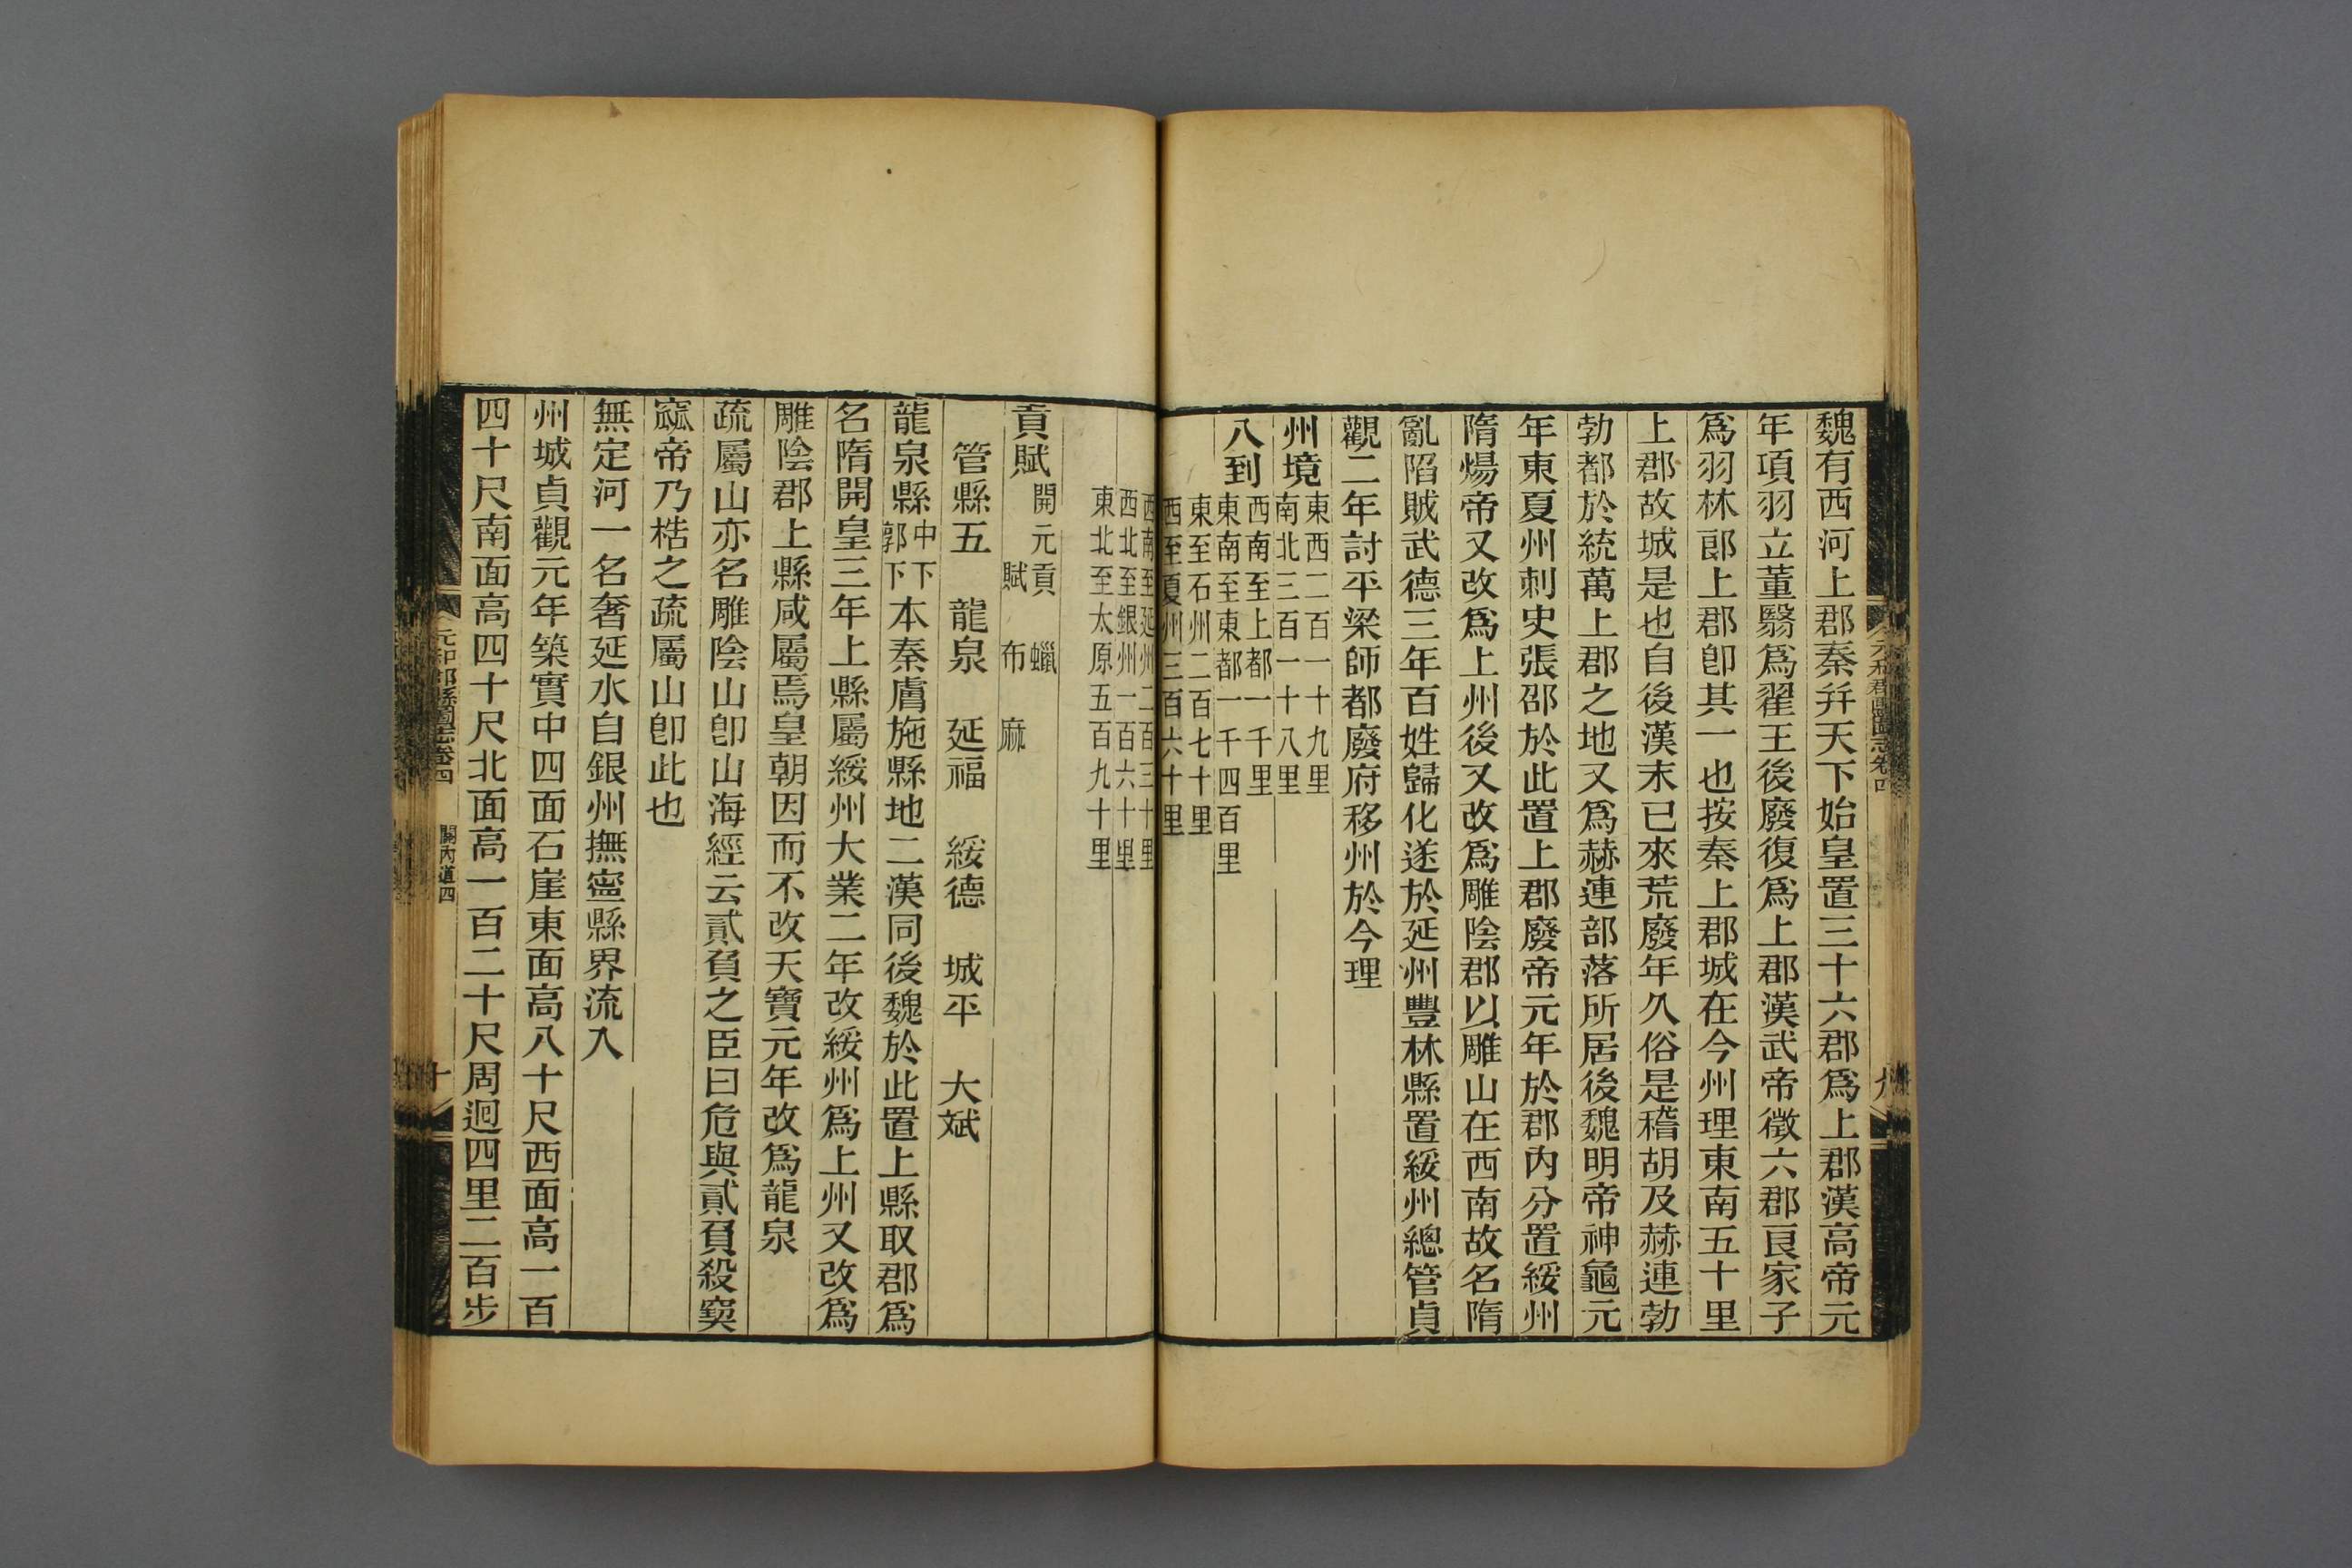 魏有西河上郡秦幷天下始皇置三十六郡爲上郡漢高帝元
年項羽立董翳爲翟王後廢復爲上郡漢武帝徵六郡良家子
爲羽林郎上郡卽其一也按秦上郡城在今州理東南五十里
上郡故城是也自後漢末已來荒廢年久俗是稽胡及赫連勃
勃都於統萬上郡之地又爲赫連部落所居後魏明帝神龜元
年東夏州刺史張邵於此置上郡廢帝元年於郡內分置綏州
隋煬帝又改爲上州後又改爲雕陰郡以雕山在西南故名隋
亂陷賊武德三年百姓歸化遂於延州豐林縣置綏州總管貞
觀二年討平梁師都廢府移州於今理
州境東西二百一十九里
南北三百一十八里
八到西南至上都一千里
東南至東都一千四百里
東至石州二百七十里
西至夏州三百六十里
西南至延州二百三十里
西北至銀州一百六十里
東北至太原五百九十里
貢賦開元貢 蠟
賦 布 麻
管縣五 龍泉 延福 綏德 城平 大斌
龍泉縣中下
郭下本秦膚施縣地二漢同後魏於此置上縣取郡爲
名隋開皇三年上縣屬綏州大業二年改綏州爲上州又改爲
雕陰郡上縣咸屬焉皇朝因而不改天寶元年改爲龍泉
疏屬山亦名雕陰山卽山海經云貳負之臣曰危與貳負殺窫
窳帝乃梏之疏屬山卽此也
無定河一名奢延水自銀州撫寧縣界流入
州城貞觀元年築實中四面石崖東面高八十尺西面高一百
四十尺南面高四十尺北面高一百二十尺周迴四里二百步
元和郡縣圖志卷四 關內道四 十